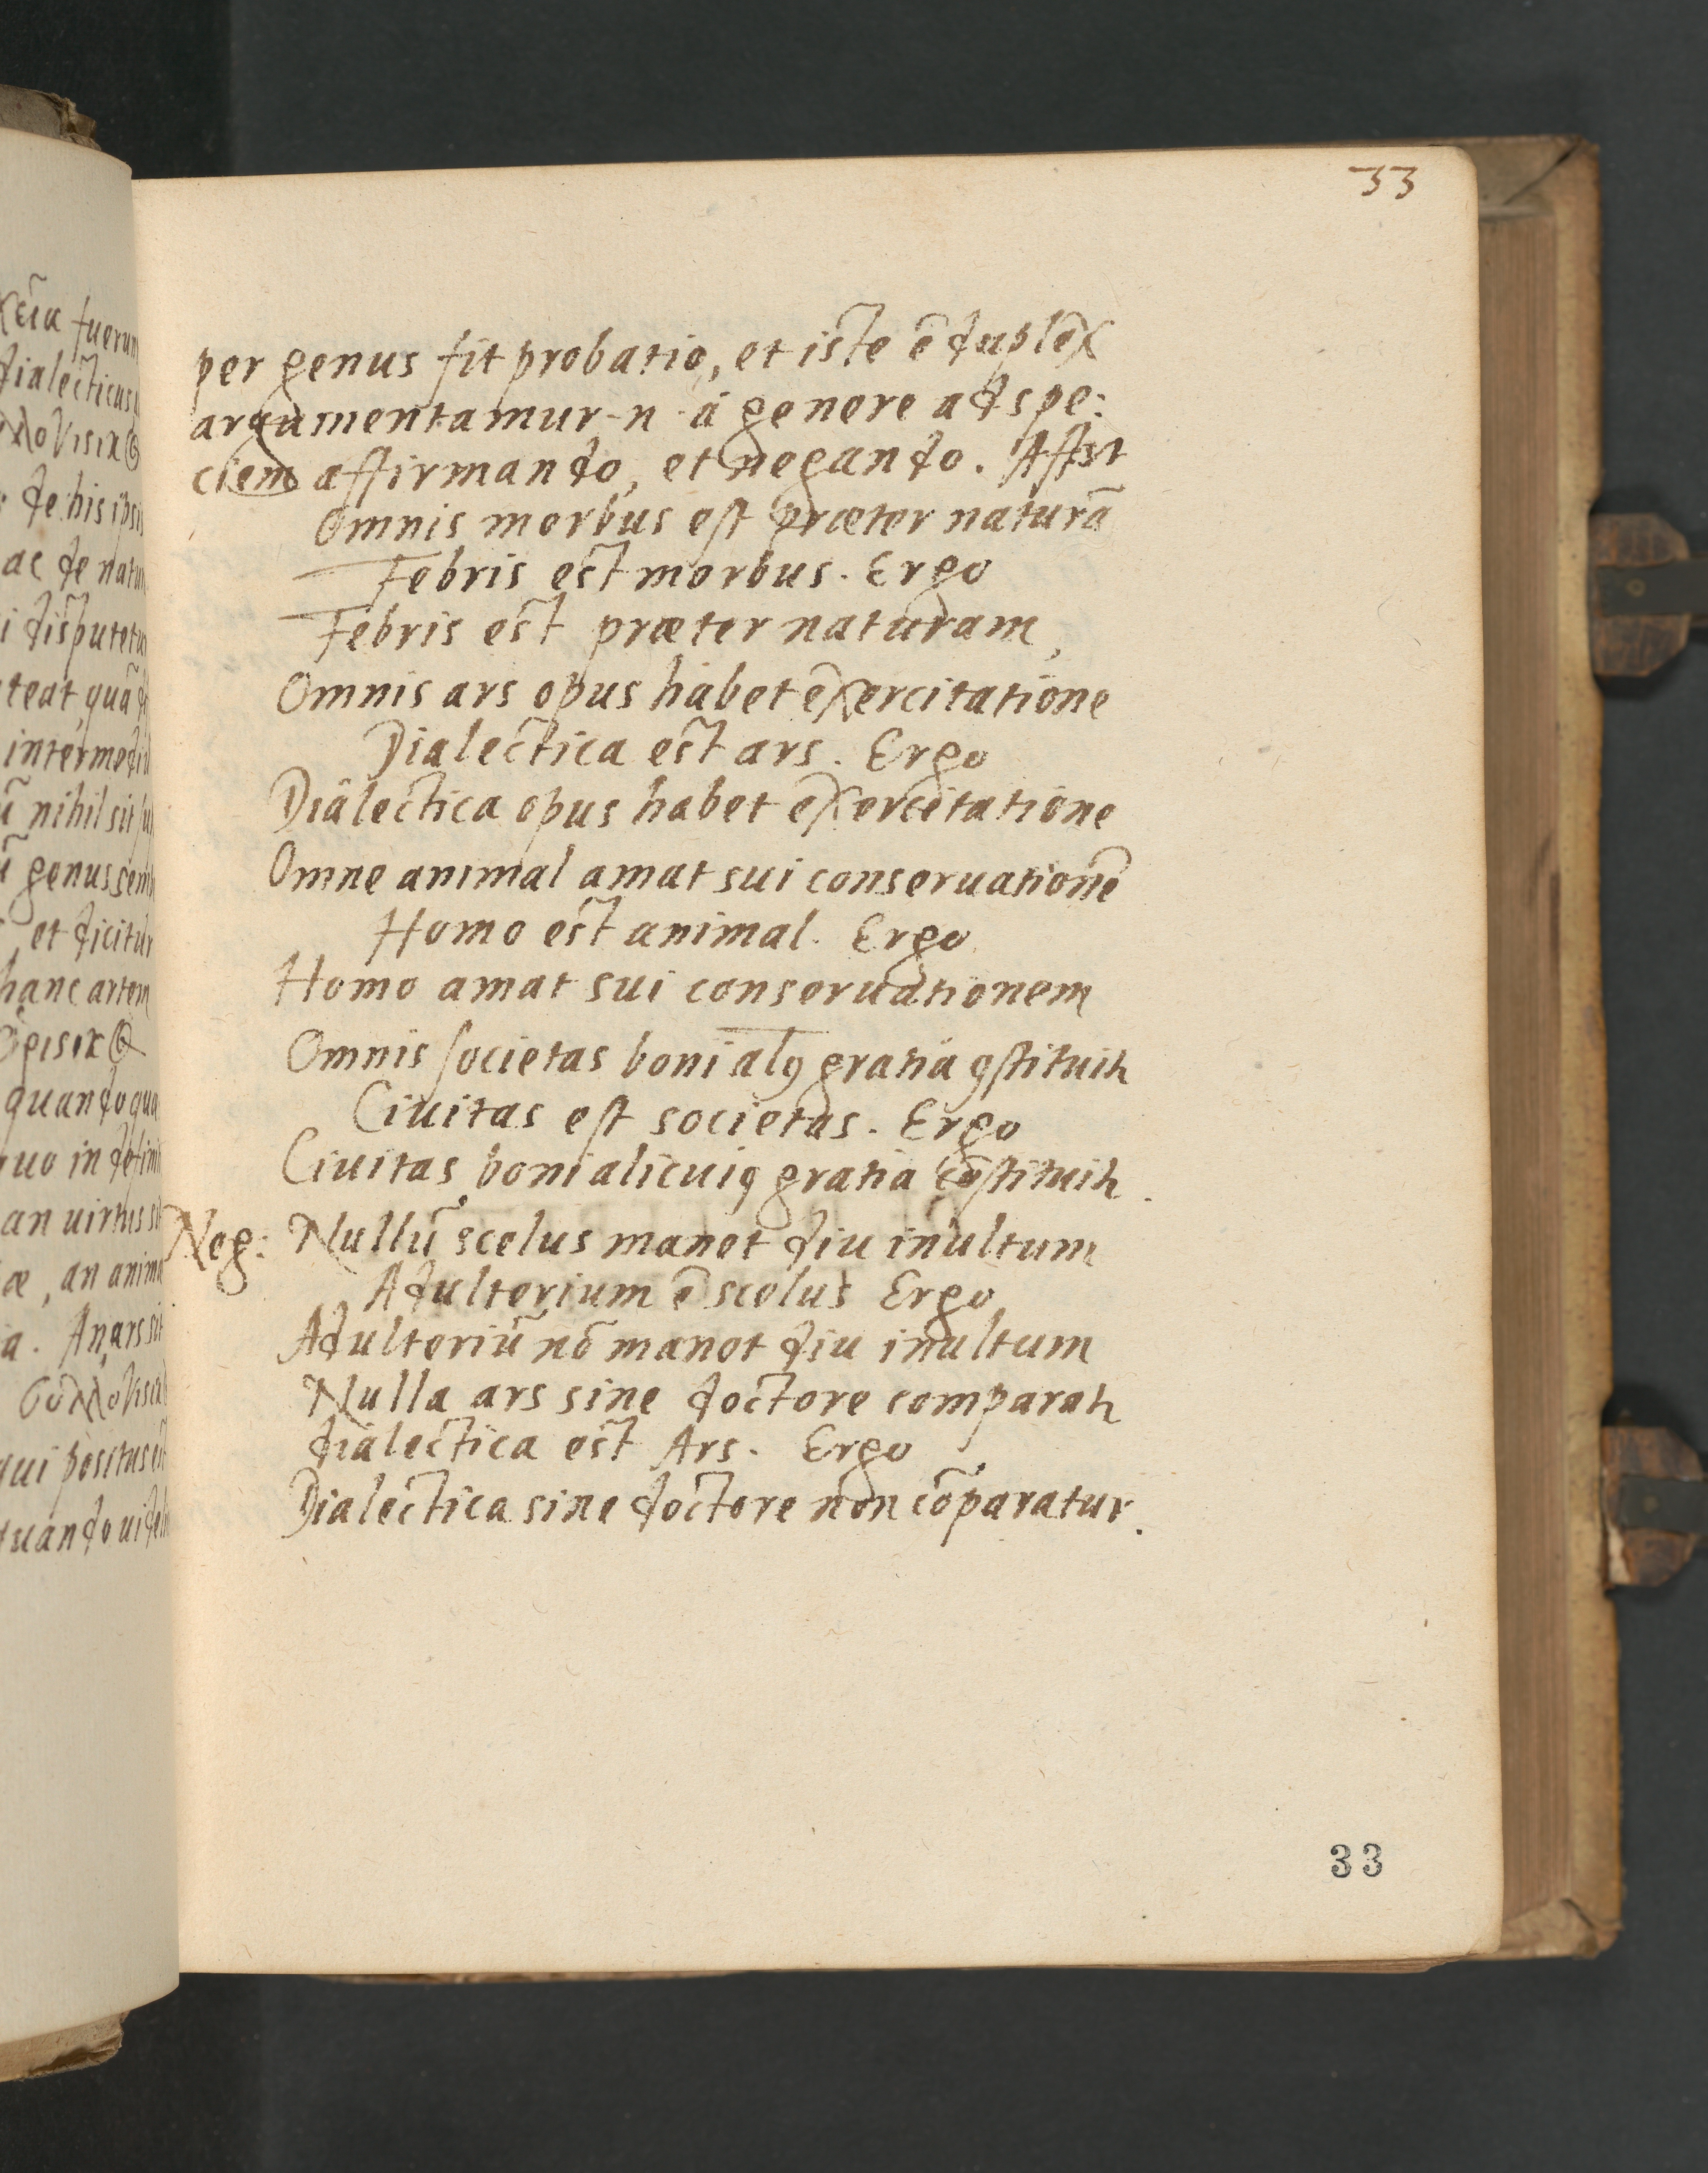 33
per genus fit probatio, et iste ē duplex
argumentamur .n. à genere ad spe:
ciem affirmando, et negando.
Omnis morbus est præter naturā
Febris est morbus. Ergo
Febris est præter naturam,
Omnis ars opus habet exercitatione
Dialectica est ars. Ergo
Dialectica opus habet exercitatione
Omne animal amat sui conseruationē
Homo est animal. Ergo
Homo amat sui conseruationem
Omnis societas boni gratia
Ciuitas est societas. Ergo
Ciuitas boni gratia
Neg: Nullū scelus manet diu inultum
Adulterium ē scelus Ergo
Adulteriū nō manet diu inultum
Nulla ars sine doctore
dialectica est Ars. Ergo
Dialectica sine doctore non cōparatur.
33
fuerun
dialecticus
de his ipsi
ac de natu
i disputetu
teat, quā
intermedi
nihil sit
genus sem
et dicitur
hanc artem
quando
uo in defini
an uirtus
æ, an anima
a. An ars sit
qui positus